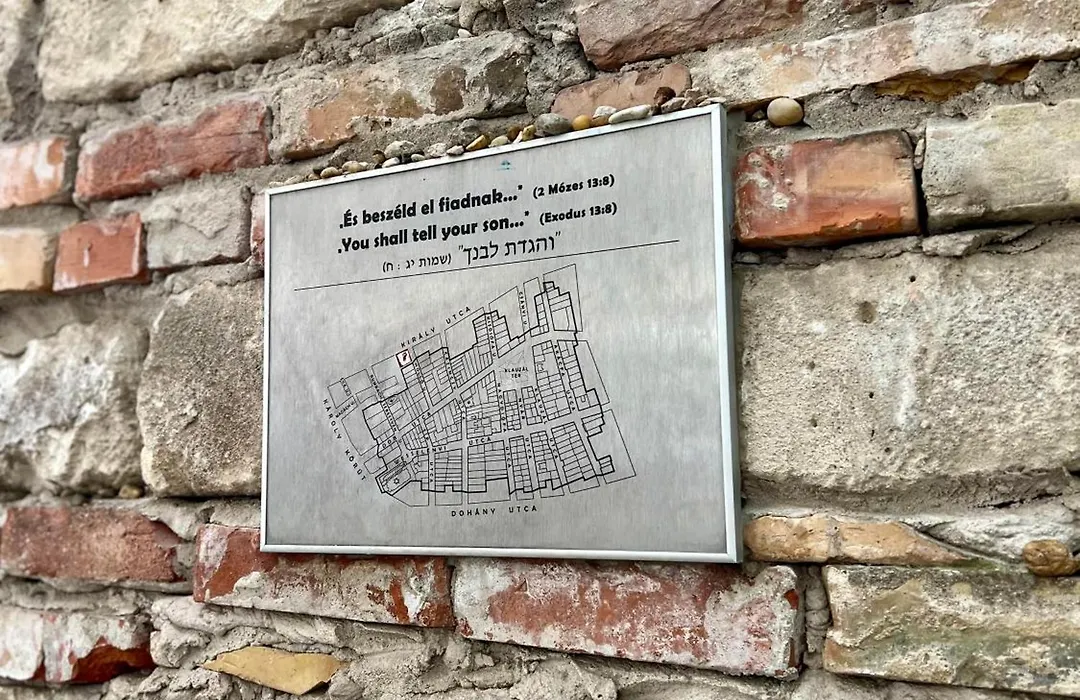 „És beszéld el fiadnak..." (2 Mózes 13:8)
„You shall tell your son..." (Exodus 13:8)
"והגדת לבנך" (שמות יג : ח)
KIRÁLY UTCA
KLAUZÁL
TÉR
KÁROLY KÖRÚT
UTCA
DOHÁNY UTCA